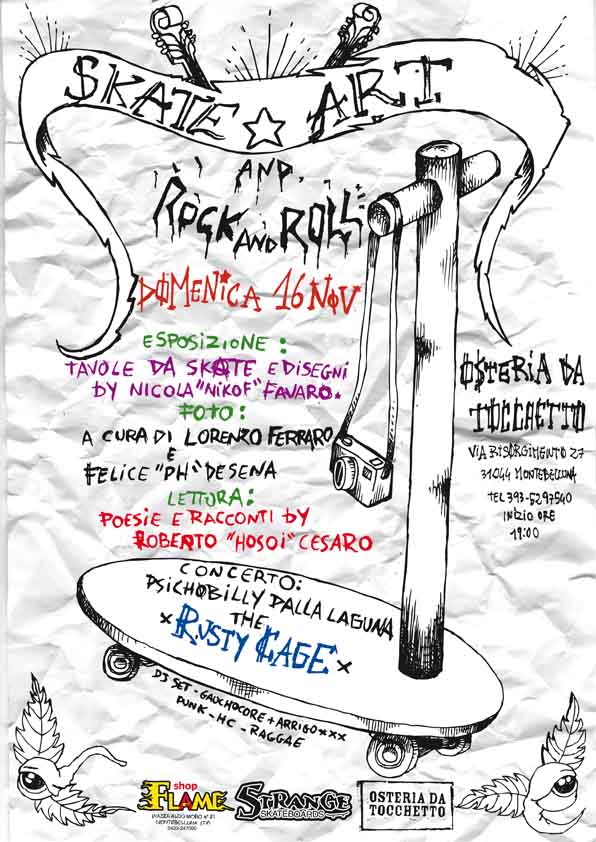 SKATE ☆ ART
AND
ROCK AND ROLL
DOMENICA 16 NOV
ESPOSIZIONE:
TAVOLE DA SKATE E DISEGNI
BY NICOLA "NIKOF" FAVARO.
FOTO:
A CURA DI LORENZO FERRARO
E
FELICE "PH" DESENA
LETTURA:
POESIE E RACCONTI BY
ROBERTO "HOSOI" CESARO
OSTERIA DA
TOCCHETTO
VIA RISORGIMENTO 27
31044 MONTEBELLUNA
TEL 393-5297540
INIZIO ORE
19:00
CONCERTO:
PSICHOBILLY DALLA LAGUNA
THE
x RUSTY CAGE x
DJ SET - GAUCHOCORE + ARRIGO xxx
PUNK - HC - RAGGAE
shop
FLAME
MONTEBELLUNA (TV)
STRANGE
SKATEBOARDS
OSTERIA DA
TOCCHETTO